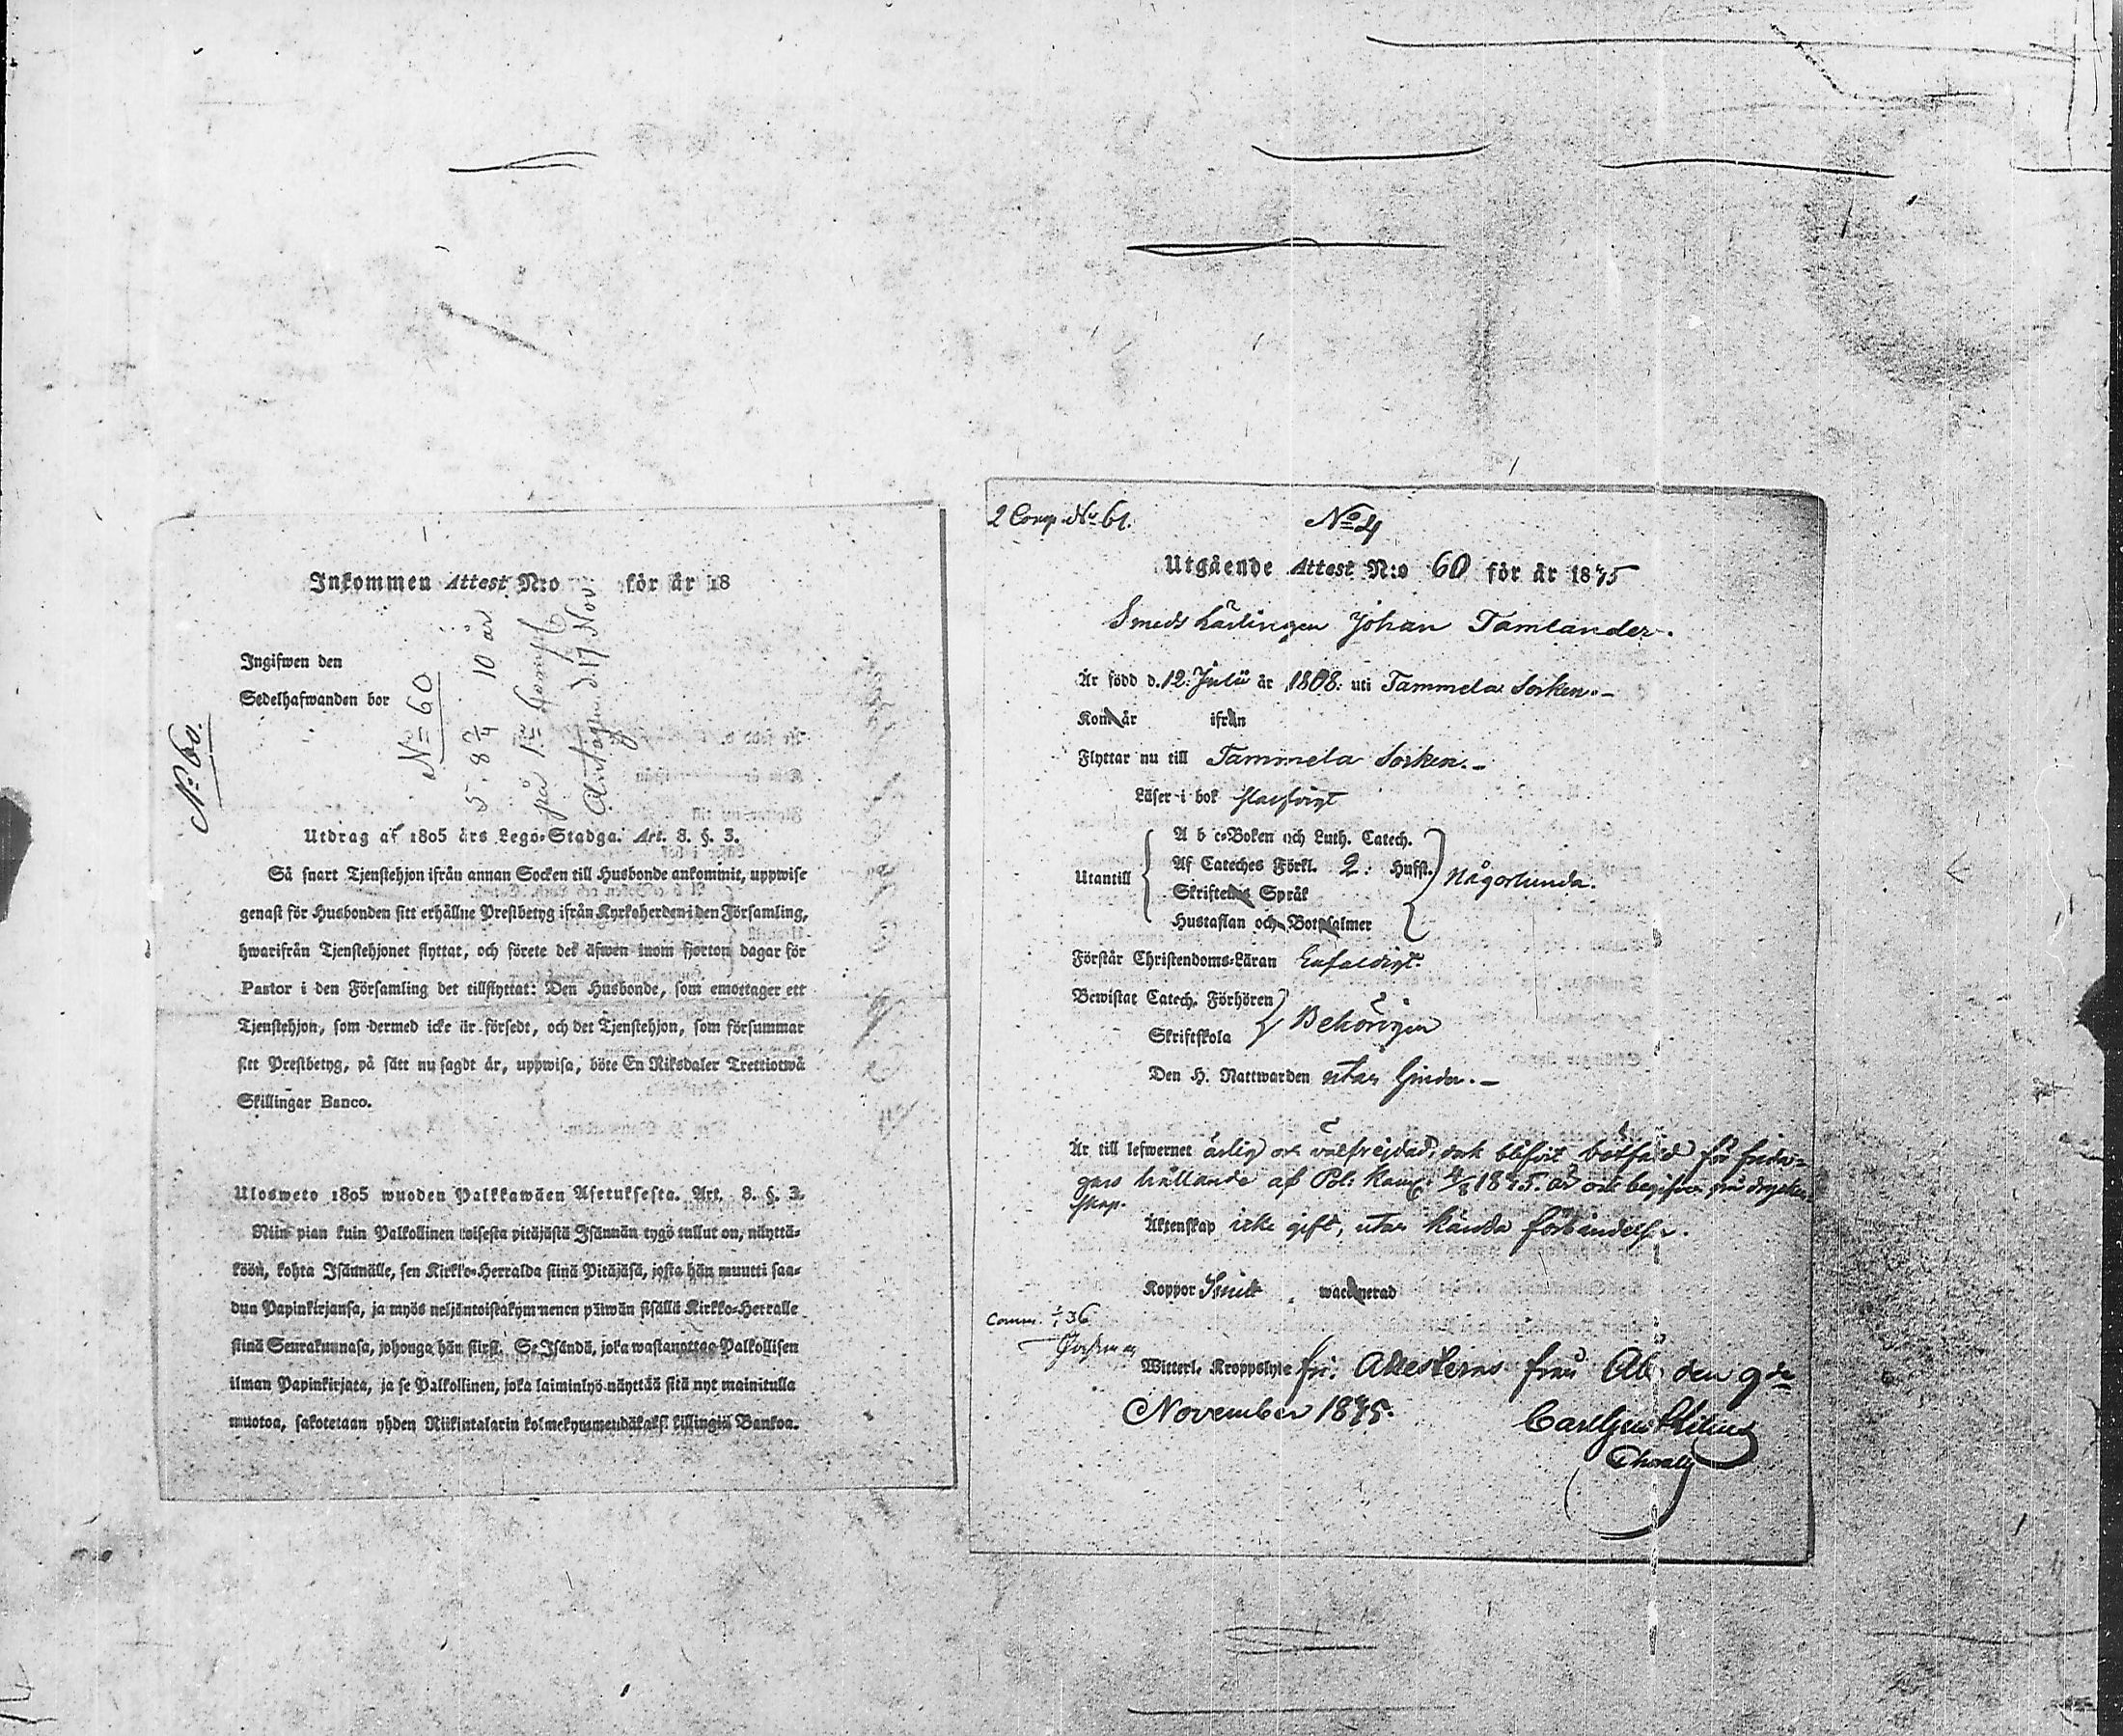 Inkommen Attest N:o för år 18
Ingifwen den
Sedelhafwanden bor
No 60.
No 60
5. 8 2/4 10 år
på 1:a Komp
Antagen d. 17 Nov
Utdrag af 1805 års Lego-Stadga. Art. 8. §. 3.
Så snart Tjenstehjon ifrån annan Socken till Husbonde ankommit, uppwise
genast för Husbonden sitt erhållne Prestbetyg ifrån Kyrkoherden i den Församling,
hwarifrån Tjenstehjonet flyttat, och förete det äfwen inom fjorton dagar för
Pastor i den Församling det tillflyttat: Den Husbonde, som emottager ett
Tjenstehjon, som dermed icke är försedt, och det Tjenstehjon, som försummar
sitt Prestbetyg, på sätt nu sagdt är, uppwisa, böte En Riksdaler Trettiotwå
Skillingar Banco.
Ulosweto 1805 wuoden Palkkawäen Asetuksesta. Art. 8. §. 3.
Niin pian kuin Palkollinen toisesta pitäjästä Isännän tygö tullut on, näyttä-
köön, kohta Isännälle, sen Kirkko-Herralda siinä Pitäjäsä, josta hän muutti saa-
dun Papinkirjansa, ja myös neljäntoistakymmenen päiwän sisällä Kirkko-Herralle
siinä Seurakunnasa, johonga hän siirsi. Se Isändä, joka wastanottaa Palkollisen
ilman Papinkirjata, ja se Palkollinen, joka laiminlyö näyttää sitä nyt mainitulla
muotoa, sakotetaan yhden Riikintalarin kolmekymmendäkaksi killingiä Bankoa.
2 Comp. No 61.
No 4
Utgående Attest N:o 60 för år 1845
Smeds Lärlingen Johan Tamlander.
Är född d. 12: Julii år 1808: uti Tammela Socken.
Kom år ifrån
Flyttar nu till Tammela Socken.
Läser i bok
Utantill
A b c-Boken och Luth. Catech.
Af Cateches Förkl. 2: Hufst.
Skriftenes Språk
Hustaflan och Botpsalmer
Någorlunda.
Förstår Christendoms-Läran Enfaldigt
Bewistat Catech. Förhören
Skriftskola
Behörigen
Den H. Nattwarden utan hinder.
Är till lefwernet ärlig och välfrejdad, dock blifvit bötfäld för frida-
gars hållande af Pol: Kam: 4/8 1845. är och begifven på drycken-
skap.
Äktenskap icke gift, utan kända förbindelser.
Koppor haft waccinerad
Comm. 1/1 36
Witterl. Kroppslyte fri. Attesteras från Åbo den 9de
November 1845.